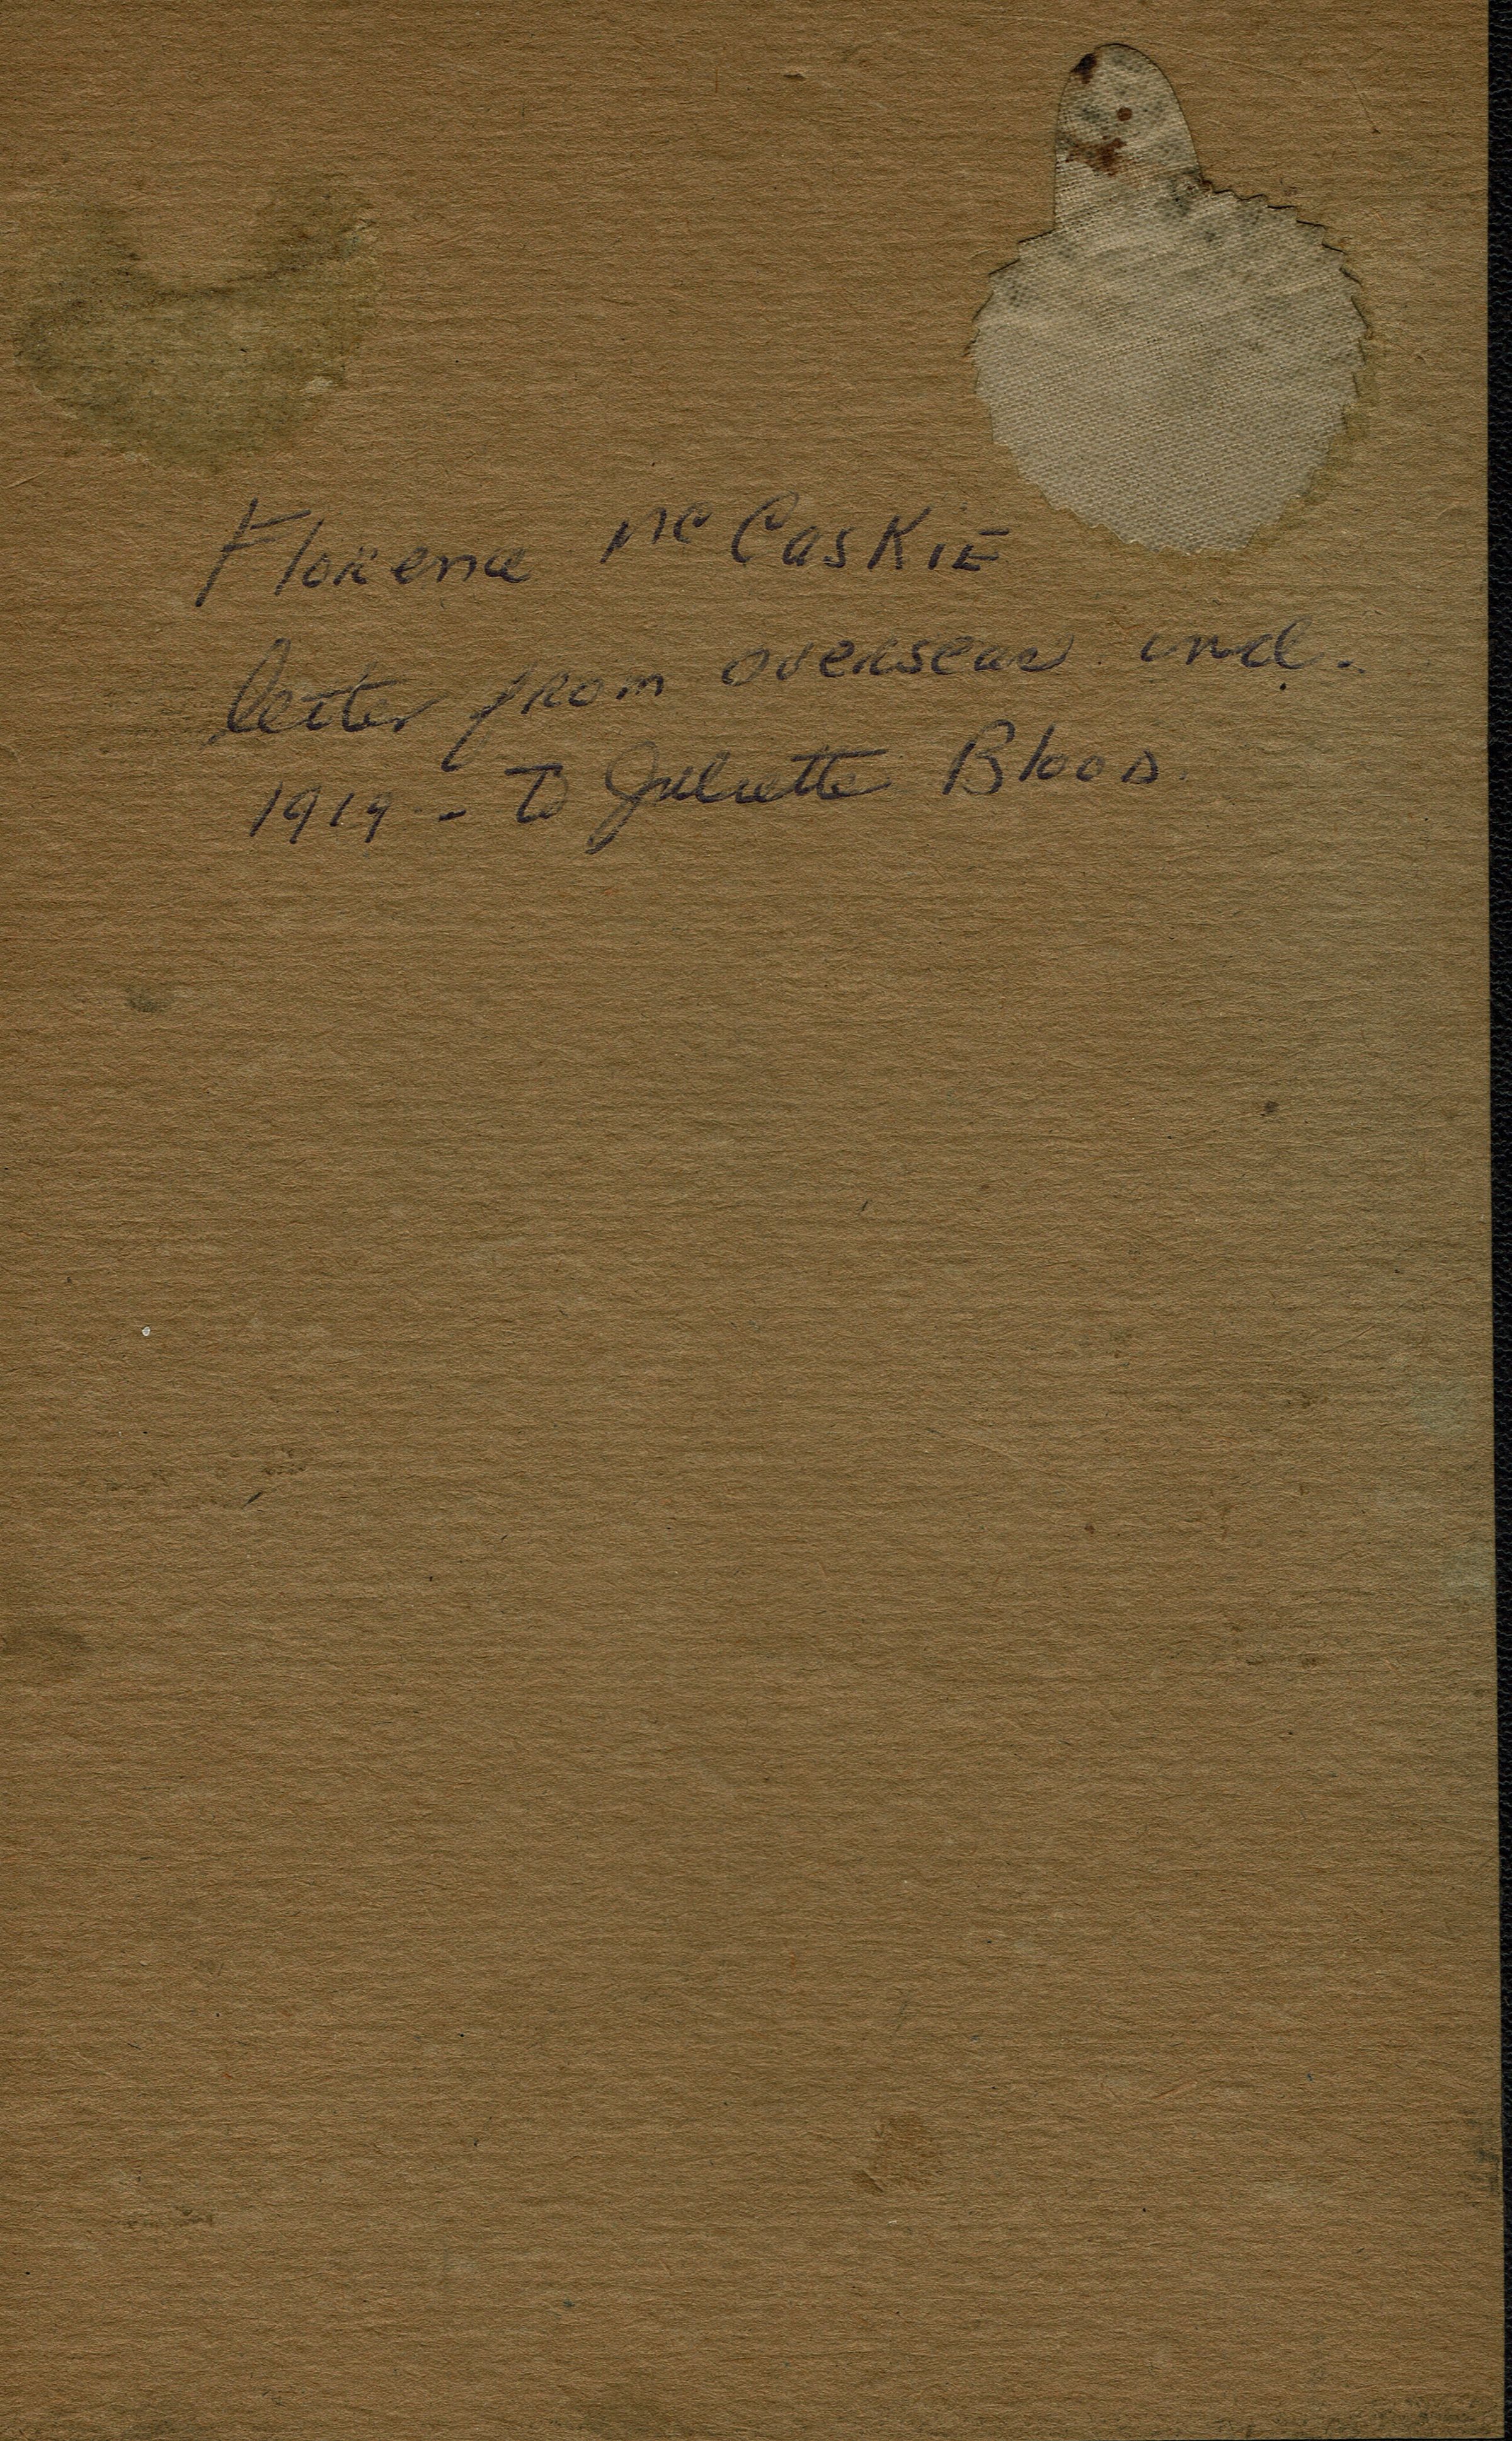 Florence McCaskie
letter from overseas incl.
1919 - To Juliette Blood.